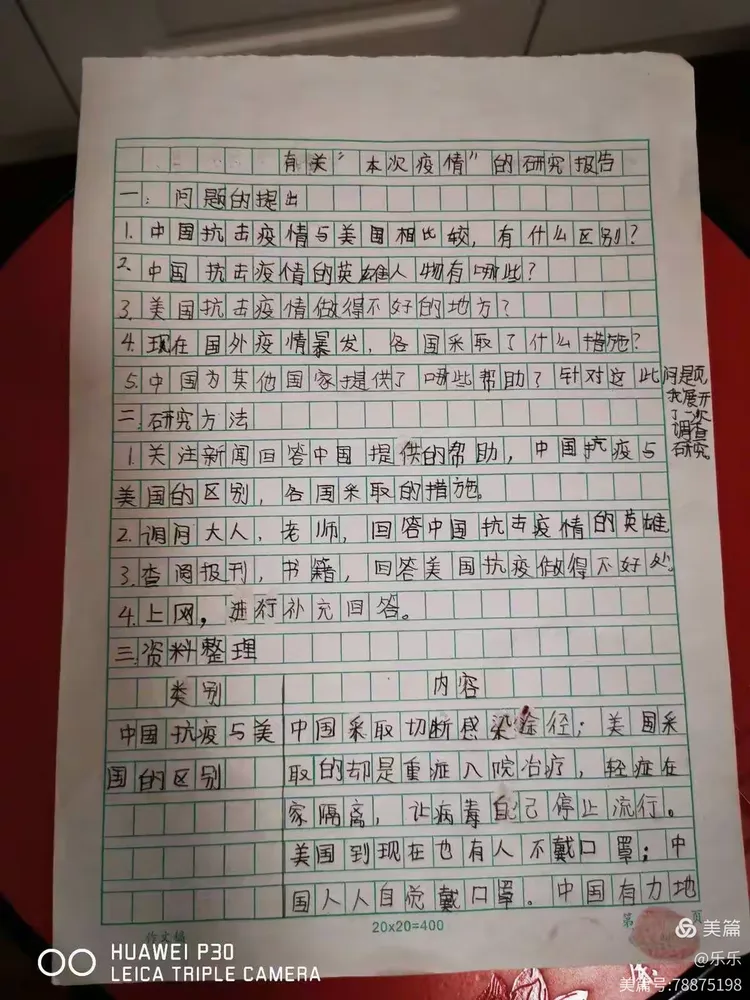 有关"本次疫情"的研究报告
一：问题的提出
1.中国抗击疫情与美国相比较，有什么区别？
2.中国抗击疫情的英雄人物有哪些？
3.美国抗击疫情做得不好的地方？
4.现在国外疫情暴发，各国采取了什么措施？
5.中国为其他国家提供了哪些帮助？针对这些问题
我展开
了一次
调查
研究。
二.研究方法
1.关注新闻回答中国提供的帮助，中国抗疫与
美国的区别，各国采取的措施。
2.调问大人，老师，回答中国抗击疫情的英雄
3.查阅报刊，书籍，回答美国抗疫做得不好处。
4.上网，进行补充回答。
三.资料整理
类别 内容
中国抗疫与美 中国采取切断感染途径；美国采
国的区别 取的却是重症入院治疗，轻症在
家隔离，让病毒自己停止流行。
美国到现在也有人不戴口罩；中
国人人自觉戴口罩。中国有力地
作文纸 20x20=400 第 页
HUAWEI P30
LEICA TRIPLE CAMERA
美篇
@乐乐
美篇号:78875198